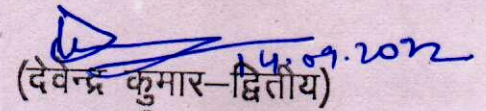 14.09.2022
(देवेन्द्र कुमार–द्वितीय)